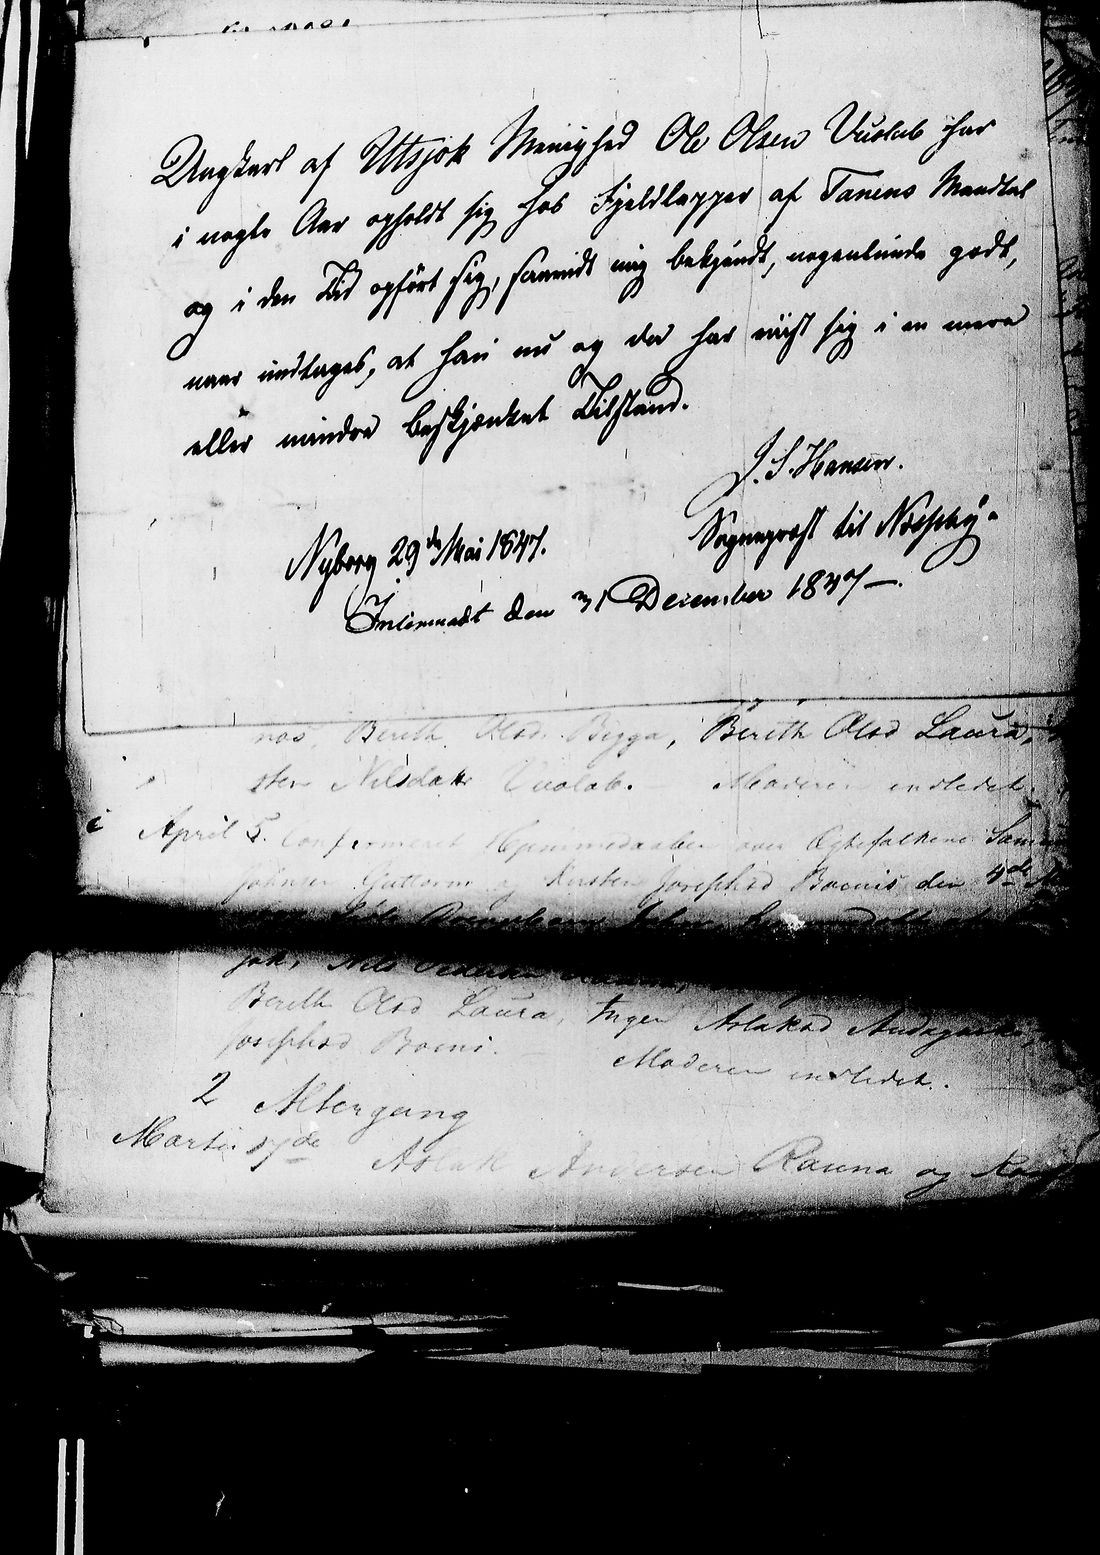 Ungkarl af Utsjok Menighed Ole Olsen Vuolab har
i nogle Aar opholdt sig hos Fjeldlapper af Tanens Mandtal
og i den Tid opført sig, saavidt mig bekjendt, nogenlunde godt,
naar undtages, at han nu og da har viist sig i en mere
eller mindre beskjænket Tilstand.
J. S. Hansen.
Sognepræst til Næsseby.
Nyborg 29de Mai 1847.
Intimeradt den 31 December 1847 —.
Bereth Olsd Bigga, Bereth Olsd Laura,
Nilsdatr Vuolab. — Moderen indledet.
April 5. Confirmeret Hjemmedaaben over Ægtefolkene
Johnsen Guttorm og Kirsten Josephsd Boenis den 4de
Nils Pedersen
Bereth Olsd Laura, Inger Aslaksd
Josephsd Boeni. — Moderen indledet.
2 Altergang
Martii 17de Aslak Andersen Rauna og